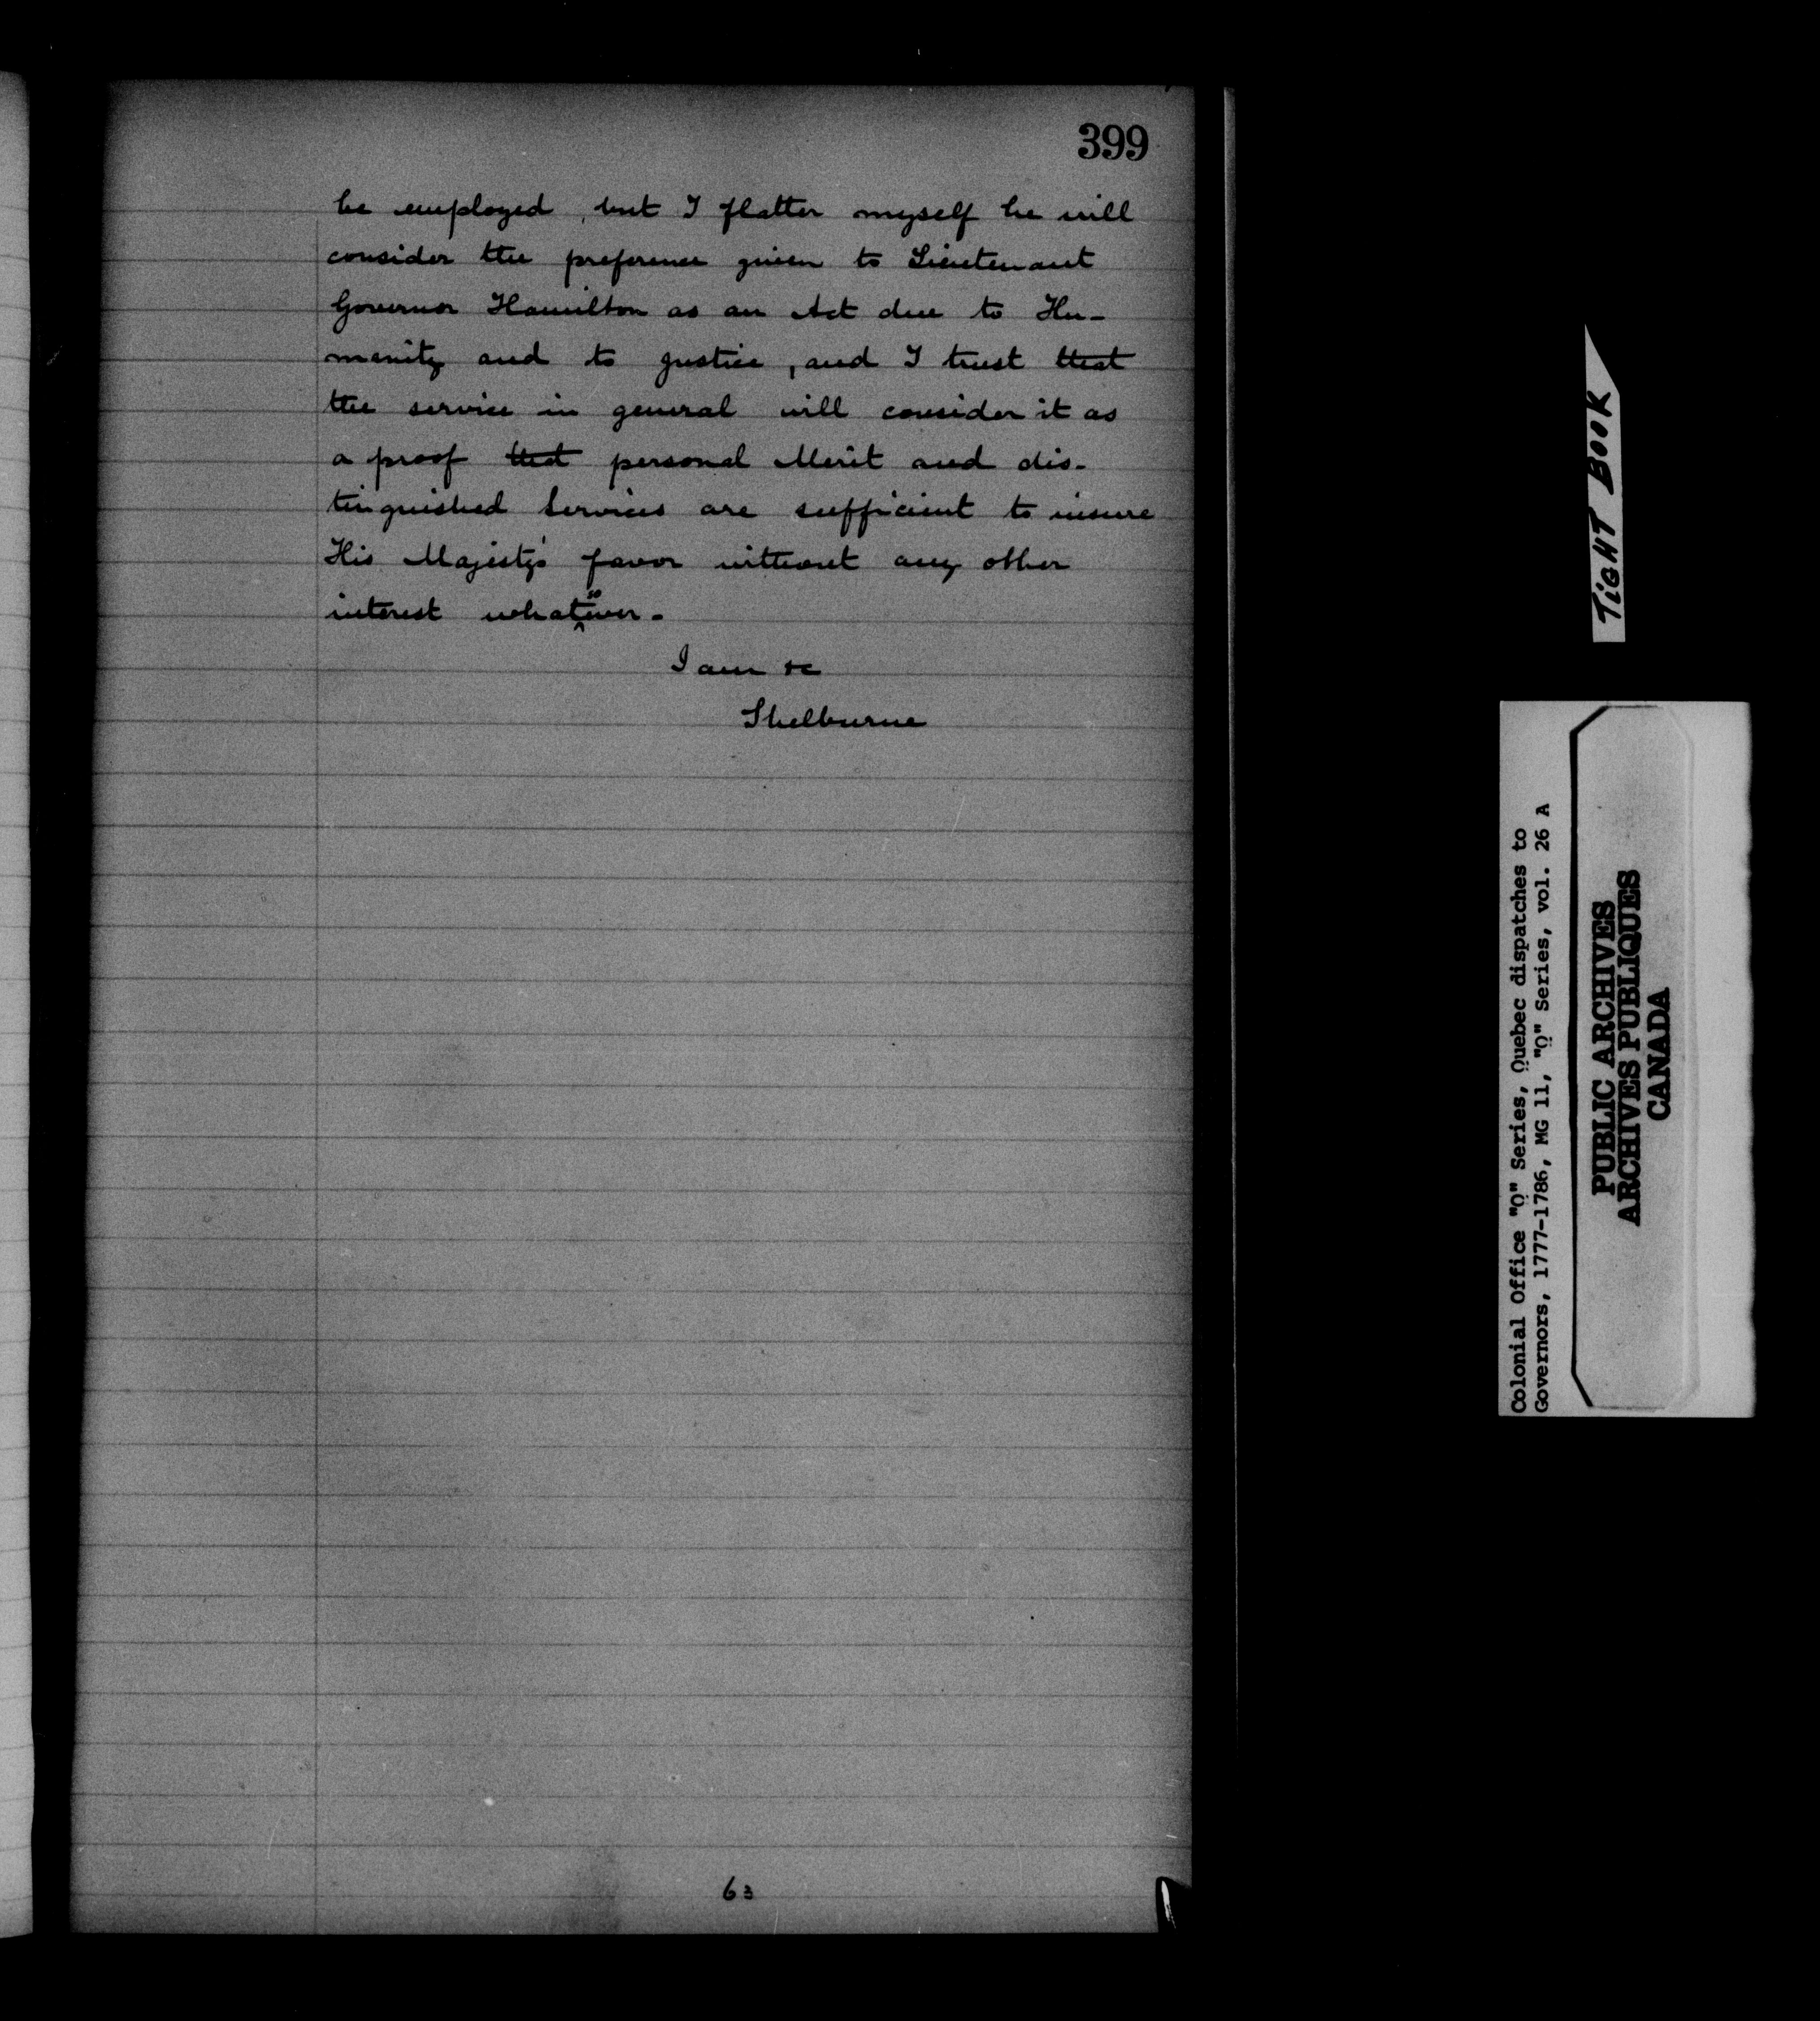 399
be employed, but I flatter myself he will
consider the preference given to Lieutenant
Governor Hamilton as an Act due to Hu-
manity and to justice, and I trust that
the service in general will consider it as
a proof that personal Merit and dis-
tinguished Services are sufficient to insure
His Majesty's favor without any other
interest whatsoever.
I am &c
Shelburne
63
TIGHT BOOK
Colonial Office "Q" Series, Quebec dispatches to
Governors, 1777-1786, MG 11, "Q" Series, vol. 26 A
PUBLIC ARCHIVES
ARCHIVES PUBLIQUES
CANADA